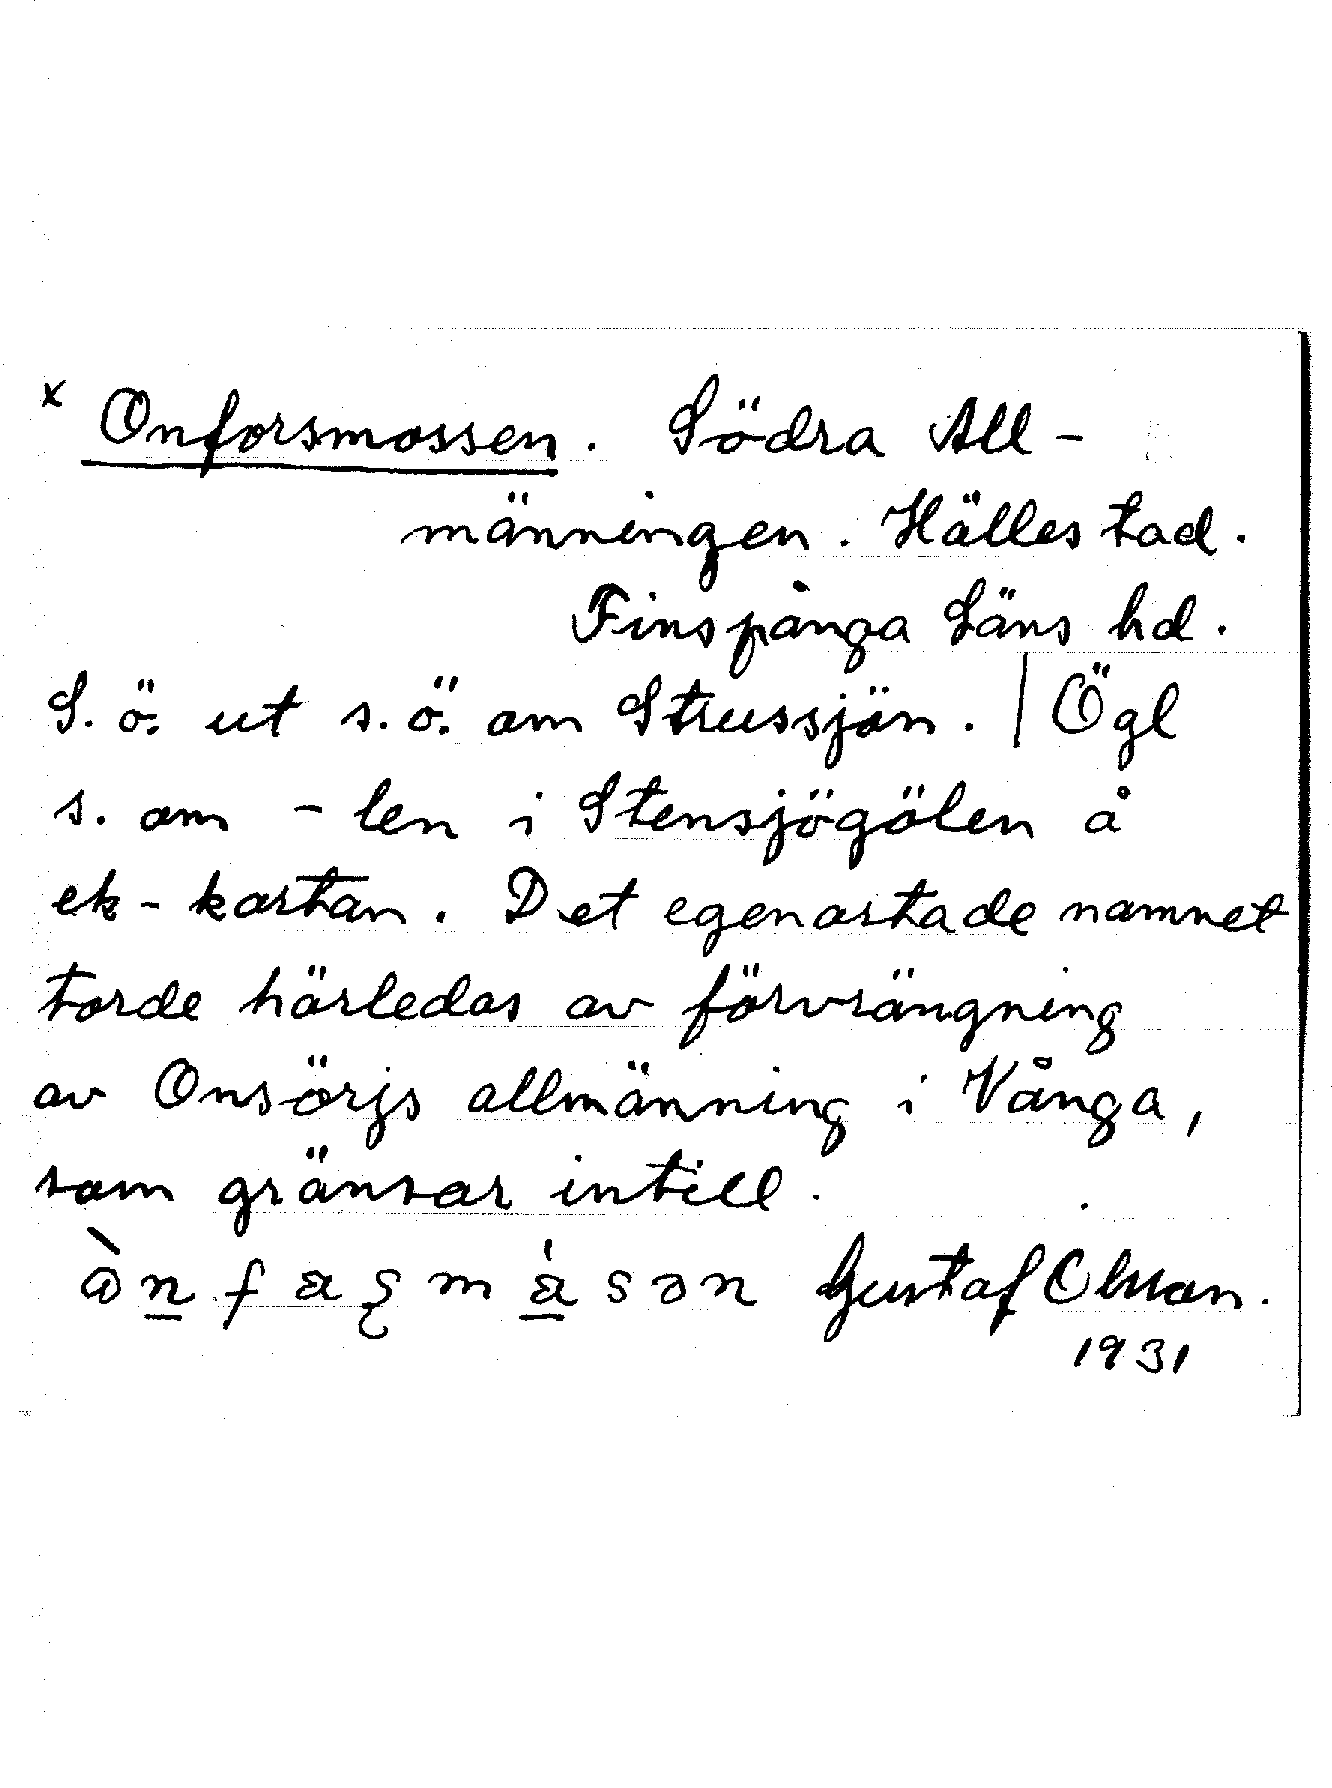 x Onforsmossen. Södra All-
männingen. Hällestad.
Finspånga Läns hd.
S.ö. ut s.ö. om Strussjön. | Ögl
s. om -len i Stensjögölen å
ek-kartan. Det egenartade namnet
torde härledas av förvrängning
av Onsörjs allmänning i Vånga,
som gränsar intill.
Gustaf
1931